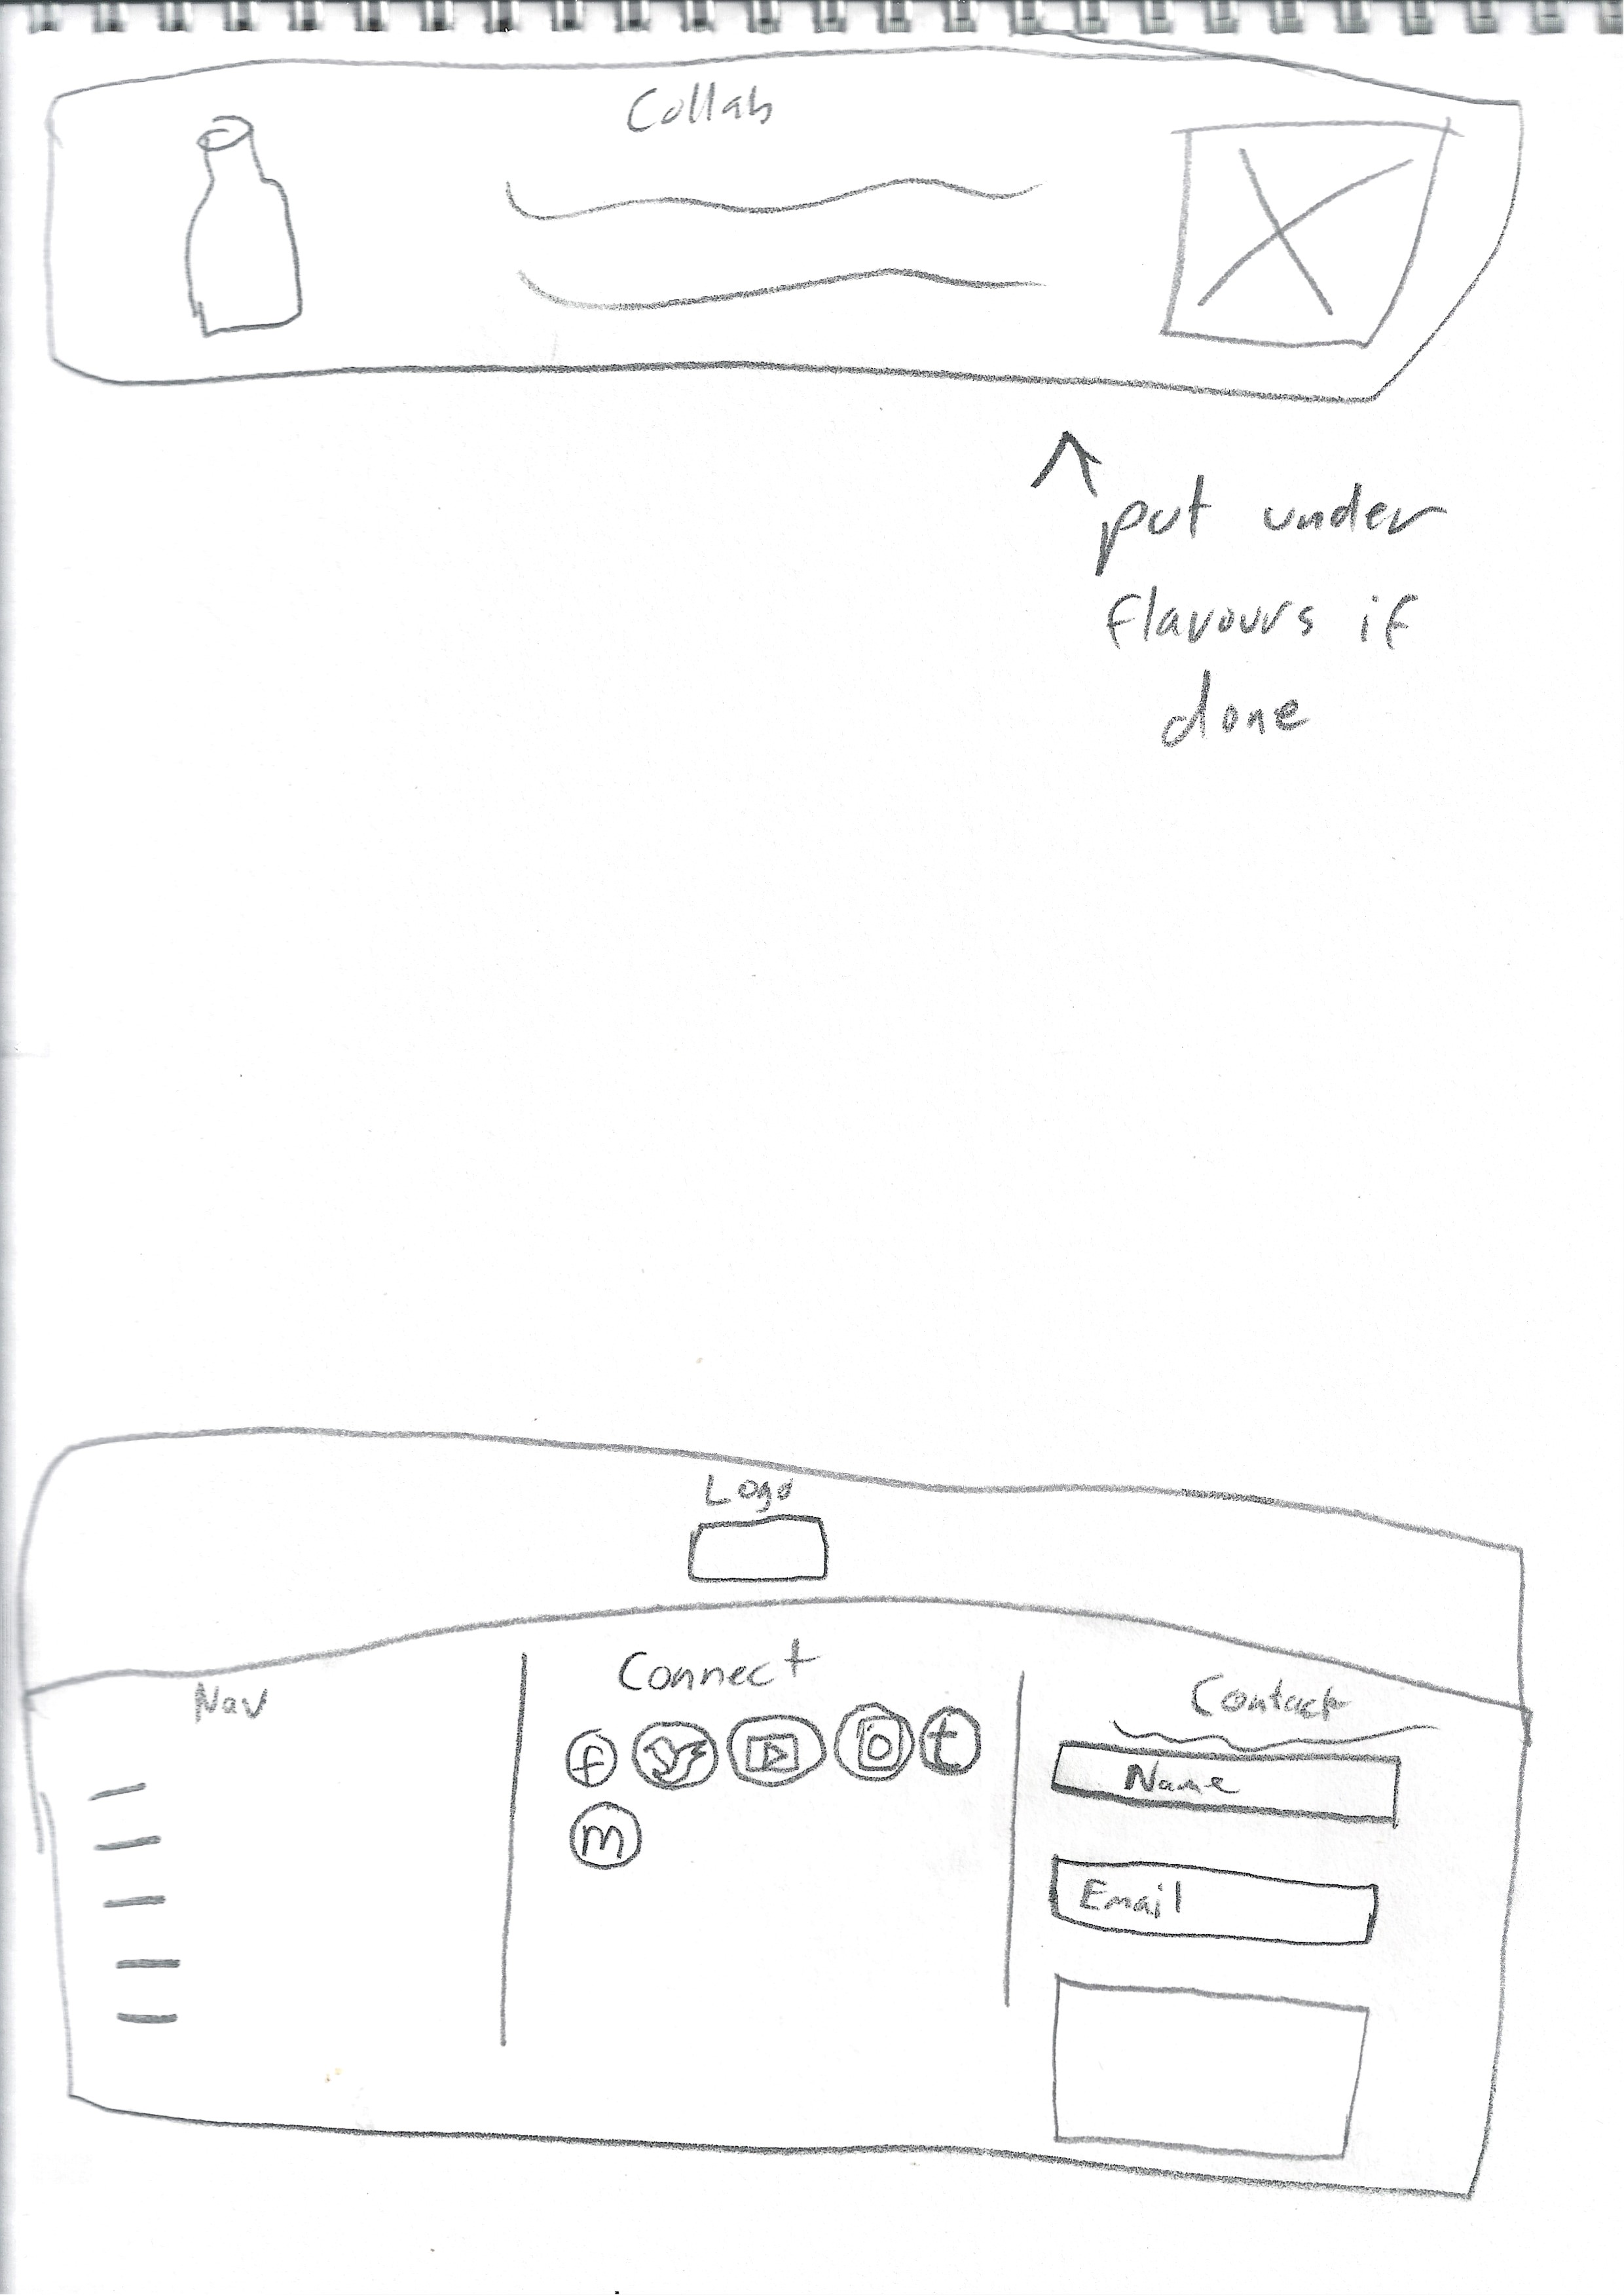 Collab
put under
flavours if
done
Logo
Nav
Connect
Contact
f
t
m
Name
Email